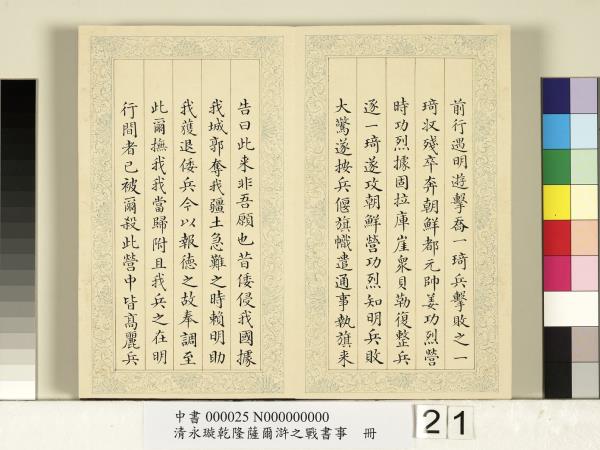 前行遇明遊擊喬一琦兵擊敗之一
琦収殘卒奔朝鮮都元帥姜功烈營
時功烈據固拉庫崖衆貝勒復整兵
逐一琦遂攻朝鮮營功烈知明兵敗
大驚遂按兵偃旗幟遣通事執旗来
告曰此来非吾願也昔倭侵我國據
我城郭奪我疆土急難之時賴明助
我獲退倭兵今以報德之故奉調至
此爾撫我我當歸附且我兵之在明
行間者已被爾殺此營中皆髙麗兵
中書 000025 N000000000
清永璇乾隆薩爾滸之戰書事 冊
21